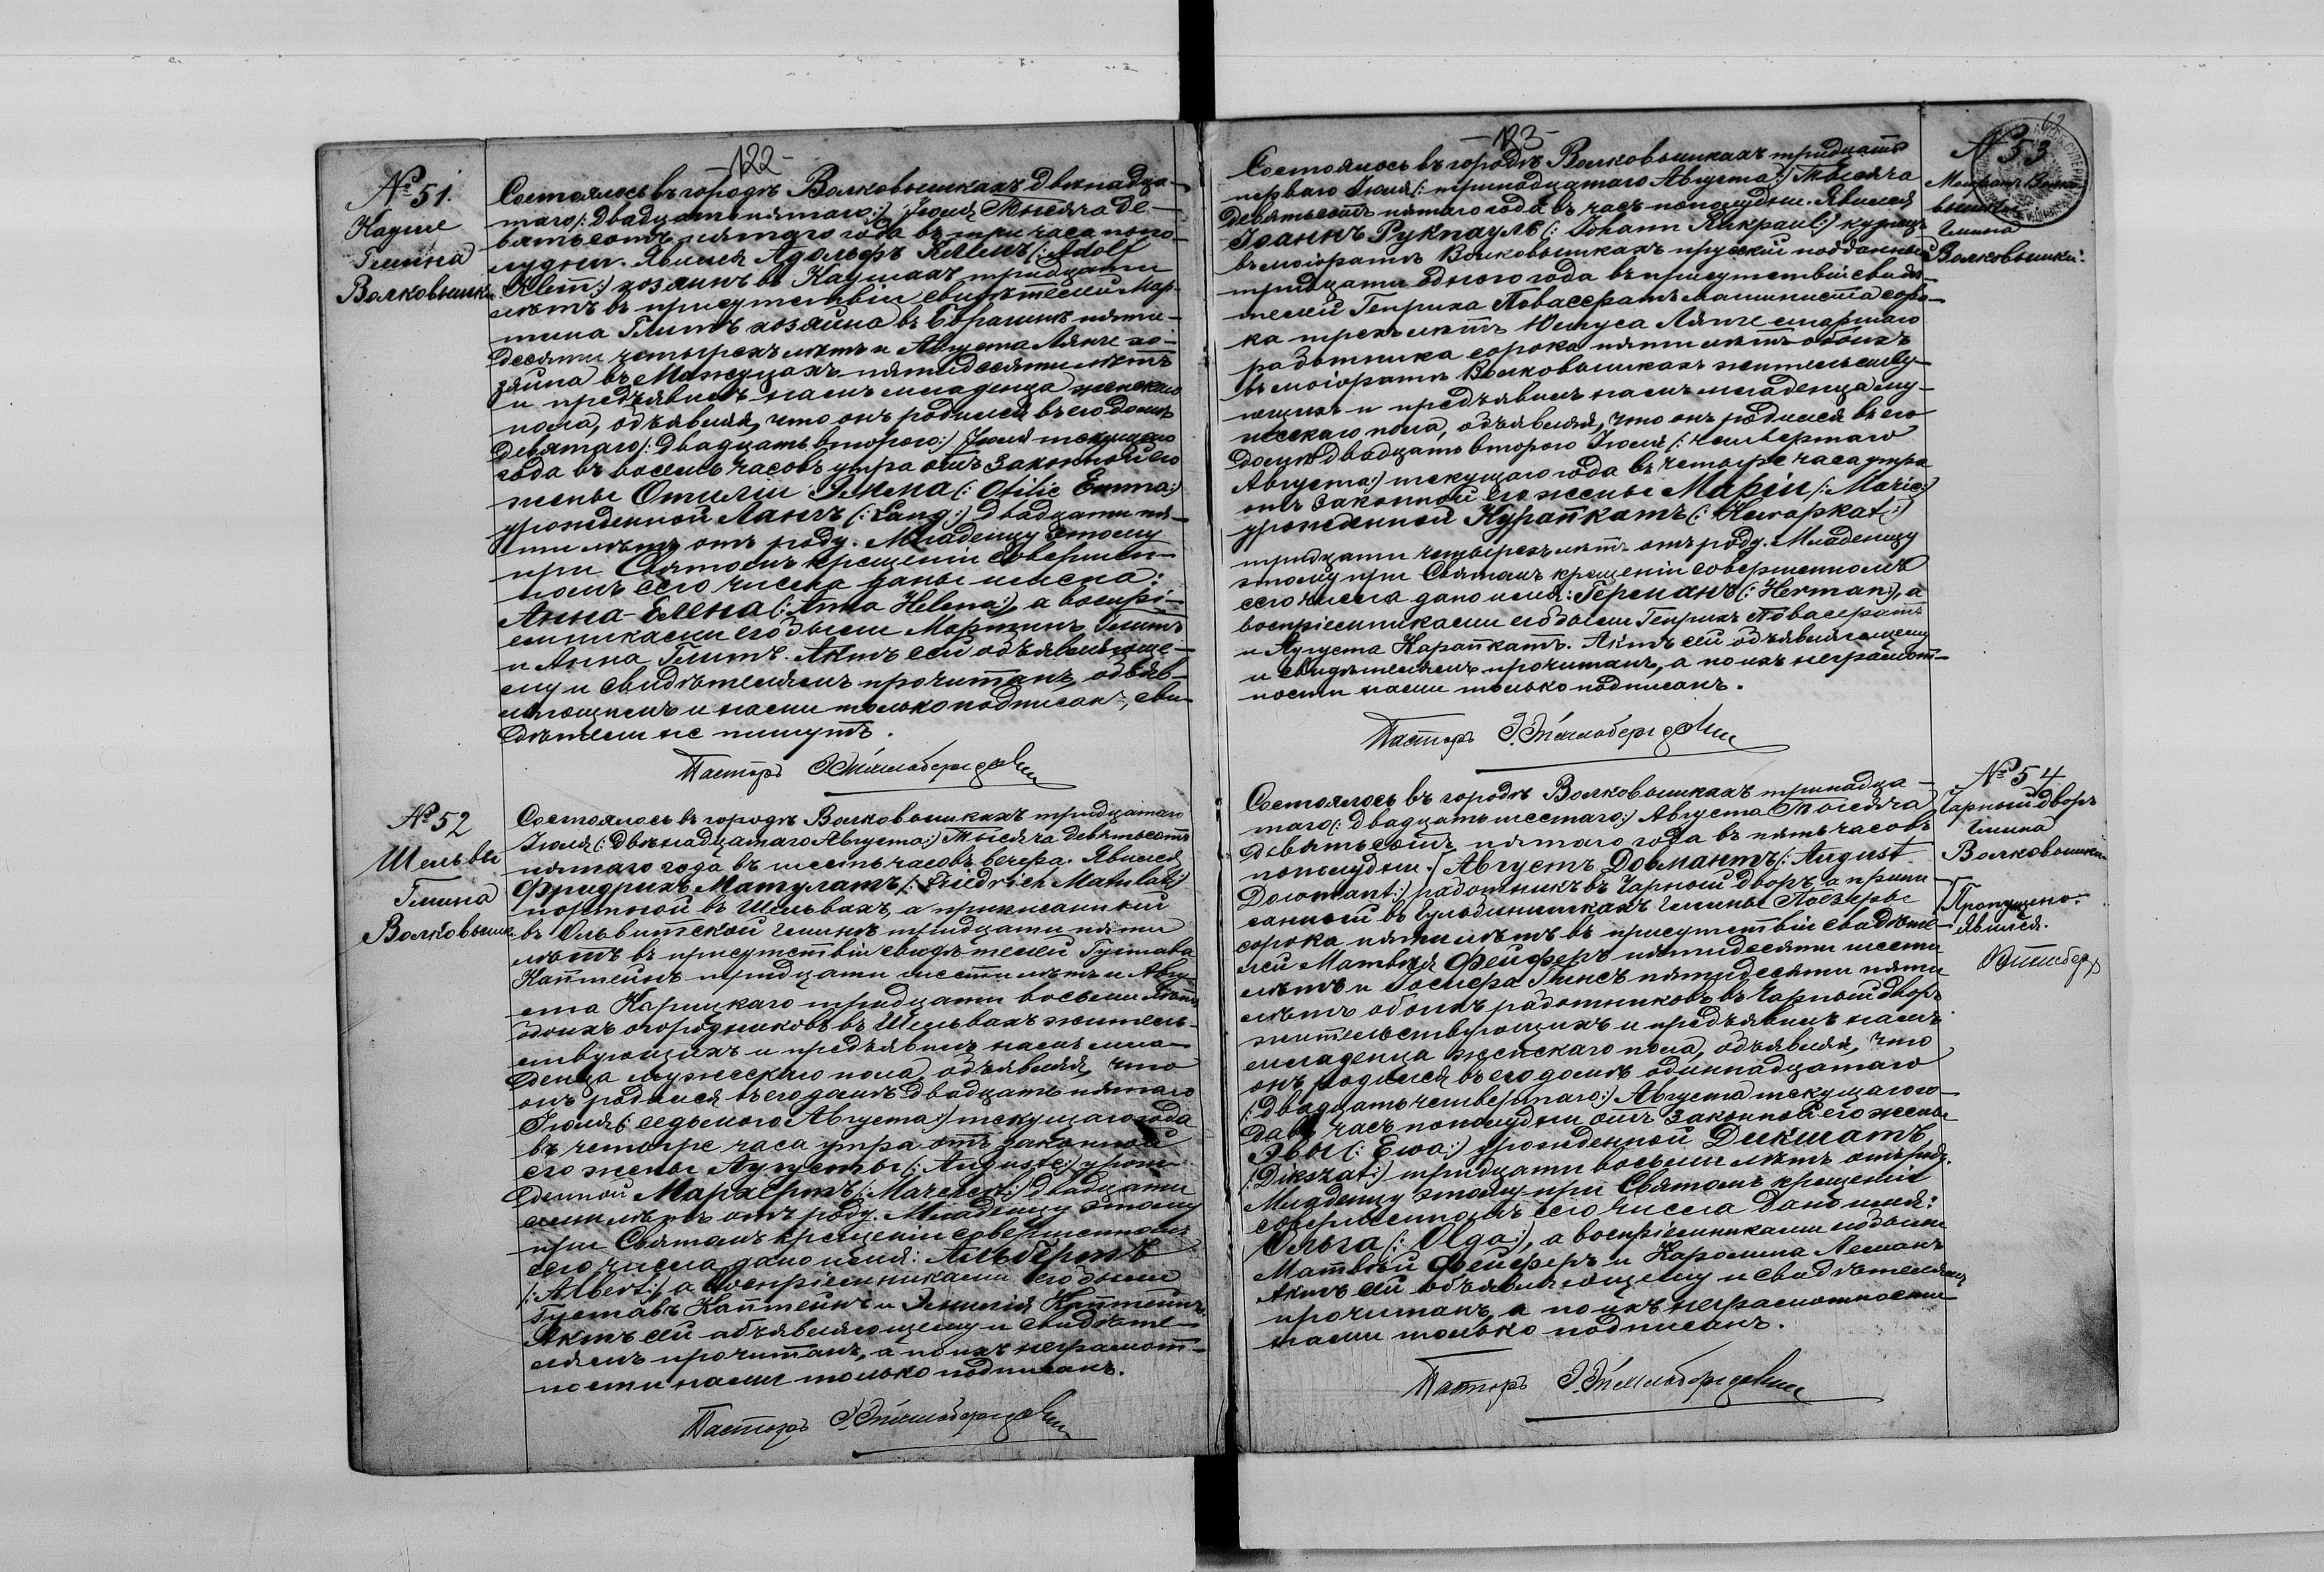 -122-
№ 51.
Кауше
Гмина
Волковышки
Состоялось въ городѣ Волковышкахъ двѣнадца-
таго (: двадцать пятаго :) Іюля тысяча де-
вятьсотъ пятаго года въ три часа попо-
лудни. Явился Адольфъ Клеинъ (: Adolf
Klein :) хозяинъ въ Каушахъ тридцати
лѣтъ въ присутствіи свидѣтелей Мар-
тина Глитъ хозяина въ пяти-
десяти четырехъ лѣтъ и Августа Лянге хо-
зяина въ пятидесяти лѣтъ
и предъявилъ намъ младенца женскаго
пола, объявляя, что онъ родился въ его домѣ
девятаго (: двадцать второго :) Іюля текущаго
года въ восемь часовъ утра отъ законной его
жены Отиліи Эмма (: Otilie Emma :)
урожденной Лангъ (: Lang :) двадцати пя-
ти лѣтъ отъ роду. Младенцу этому
при Святомъ крещеніи совершен-
номъ сего числа даны имена:
Анна-Елена (: Anna Helena :), а воспрі-
емниками его были Мартинъ Глитъ
и Анна Глитъ. Актъ сей объявляюще-
му и свидѣтелямъ прочитанъ, объяв-
ляющимъ и нами только подписанъ, сви-
дѣтели не пишутъ.
Пасторъ
№ 52
Шельвы
Гмина
Волковышки
Состоялось въ городѣ Волковышкахъ тридцатаго
Іюля (: двѣнадцатаго Августа :) тысяча девятьсотъ
пятаго года въ шесть часовъ вечера. Явился
Фридрихъ Матулатъ (: Friedrich Matulat :)
портной въ Шельвахъ, а приписанный
въ Ольвитской гминѣ тридцати пяти
лѣтъ въ присутствіи свидѣтелей Густава
Каптейнъ тридцати шести лѣтъ и Авгу-
ста Карицкаго тридцати восьми лѣтъ
обоихъ огородниковъ въ Шельвахъ житель-
ствующихъ и предъявилъ намъ мла-
денца мужескаго пола, объявляя, что
онъ родился въ его домѣ двадцать пятаго
Іюля (: седьмого Августа :) текущаго года
въ четыре часа утра отъ законной
его жены Аугусты (: Auguste :) урож-
денной Мархертъ двадцати
семи лѣтъ отъ роду. Младенцу этому
при Святомъ крещеніи совершенномъ
сего числа дано имя: Альбертъ
(: Albert :), а воспріемниками его были
Густавъ Каптейнъ и Эмилія Каптейнъ.
Актъ сей объявляющему и свидѣте-
лямъ прочитанъ, а по ихъ неграмот-
ности нами только подписанъ.
Пасторъ
-123-
№ 53
Маіоратъ Волко-
вышки
Гмина
Волковышки.
Состоялось въ городѣ Волковышкахъ тридцать
перваго Іюля (: тринадцатаго Августа :) тысяча
девятьсотъ пятаго года въ часъ пополудни. Явился
Іоаннъ Рукпауль (: Johann Rukpaul :) кузнецъ
въ маіоратѣ Волковышкахъ прусскій подданный
тридцати одного года въ присутствіи свидѣ-
телей Генриха Повассератъ машиниста соро-
ка трехъ лѣтъ Юлиуса Лянге старшаго
работника сорока пяти лѣтъ обоихъ
въ маіоратѣ Волковышкахъ жительству-
ющихъ и предъявилъ намъ младенца му-
жескаго пола, объявляя, что онъ родился въ его
домѣ двадцать второго Іюля (: четвертаго
Августа :) текущаго года въ четыре часа утра
отъ законной его жены Маріи (: Marie :)
урожденной Курапкатъ (: Kurapkat :)
тридцати четырехъ лѣтъ отъ роду. Младенцу
этому при Святомъ крещеніи совершенномъ
сего числа дано имя: Германъ (: Herman :), а
воспріемниками его были Генрихъ Повасератъ
и Аугуста Карапкатъ. Актъ сей объявляющему
и свидѣтелямъ прочитанъ, а по ихъ неграмот-
ности нами только подписанъ.
Пасторъ
№ 54
Чарный дворъ
гмина
Волковышки
Состоялось въ городѣ Волковышкахъ тринадца-
таго (: двадцать шестаго :) Августа тысяча
девятьсотъ пятаго года въ пять часовъ
пополудни. Августъ Довмантъ (: August
Dowmant :) работникъ въ Чарный дворъ, а припи-
санный въ гмины
сорока пяти лѣтъ въ присутствіи свидѣте-
лей Матвѣя Фейферъ пятидесяти шести
лѣтъ и Іосифа Гинсъ пятидесяти пяти
лѣтъ обоихъ работниковъ въ Чарный дворъ
жительствующихъ и предъявилъ намъ
младенца женскаго пола, объявляя, что
онъ родился въ его домѣ одиннадцатаго
(: двадцать четвертаго :) Августа текущаго го-
да въ часъ пополудни отъ законной его жены
Эвы (: Ewa :) урожденной Дикшатъ
(: Dikszat :) тридцати восьми лѣтъ отъ роду.
Младенцу этому при Святомъ крещеніи
совершенномъ сего числа дано имя:
Ольга (: Olga :), а воспріемниками его были
Матвѣй Фейферъ и Каролина Леманъ
Актъ сей объявляющему и свидѣтелямъ
прочитанъ, а по ихъ неграмотности
нами только подписанъ.
Пасторъ
Пропущено:
явился.